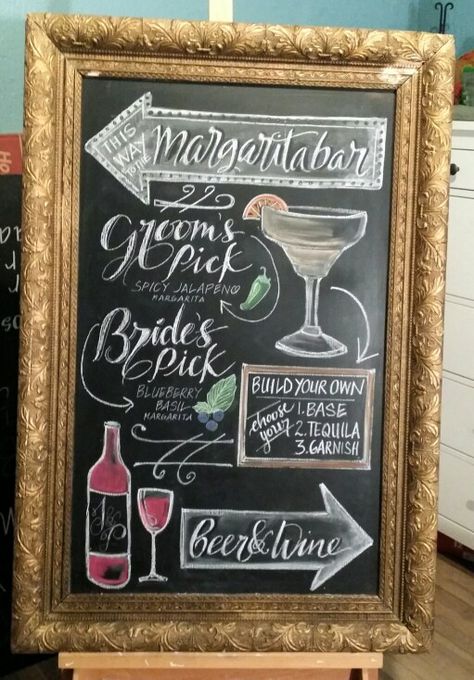 THIS
WAY
TO THE
Margarita bar
Groom's
Pick
SPICY JALAPENO
MARGARITA
Bride's
Pick
BLUEBERRY
BASIL
MARGARITA
BUILD YOUR OWN
choose
your
1. BASE
2. TEQUILA
3. GARNISH
Beer & Wine